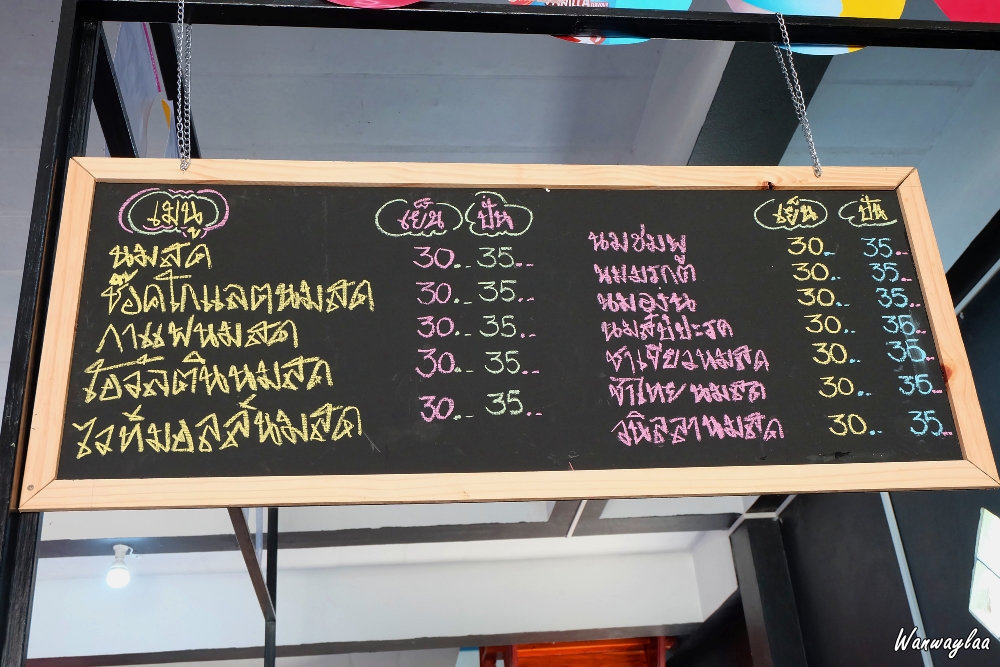 VANILLA
เมนู เย็น ปั่น
นมสด 30.- 35.-
ช็อคโกแลตนมสด 30.- 35.-
กาแฟนมสด 30.- 35.-
โอวัลตินนมสด 30.- 35.-
ไวท์มอลล์นมสด 30.- 35.-
เย็น ปั่น
นมชมพู 30.- 35.-
นมมรกต 30.- 35.-
นมองุ่น 30.- 35.-
นมสัปปะรด 30.- 35.-
ชาเขียวนมสด 30.- 35.-
ชาไทยนมสด 30.- 35.-
วนิลลานมสด 30.- 35.-
Wanwaylaa